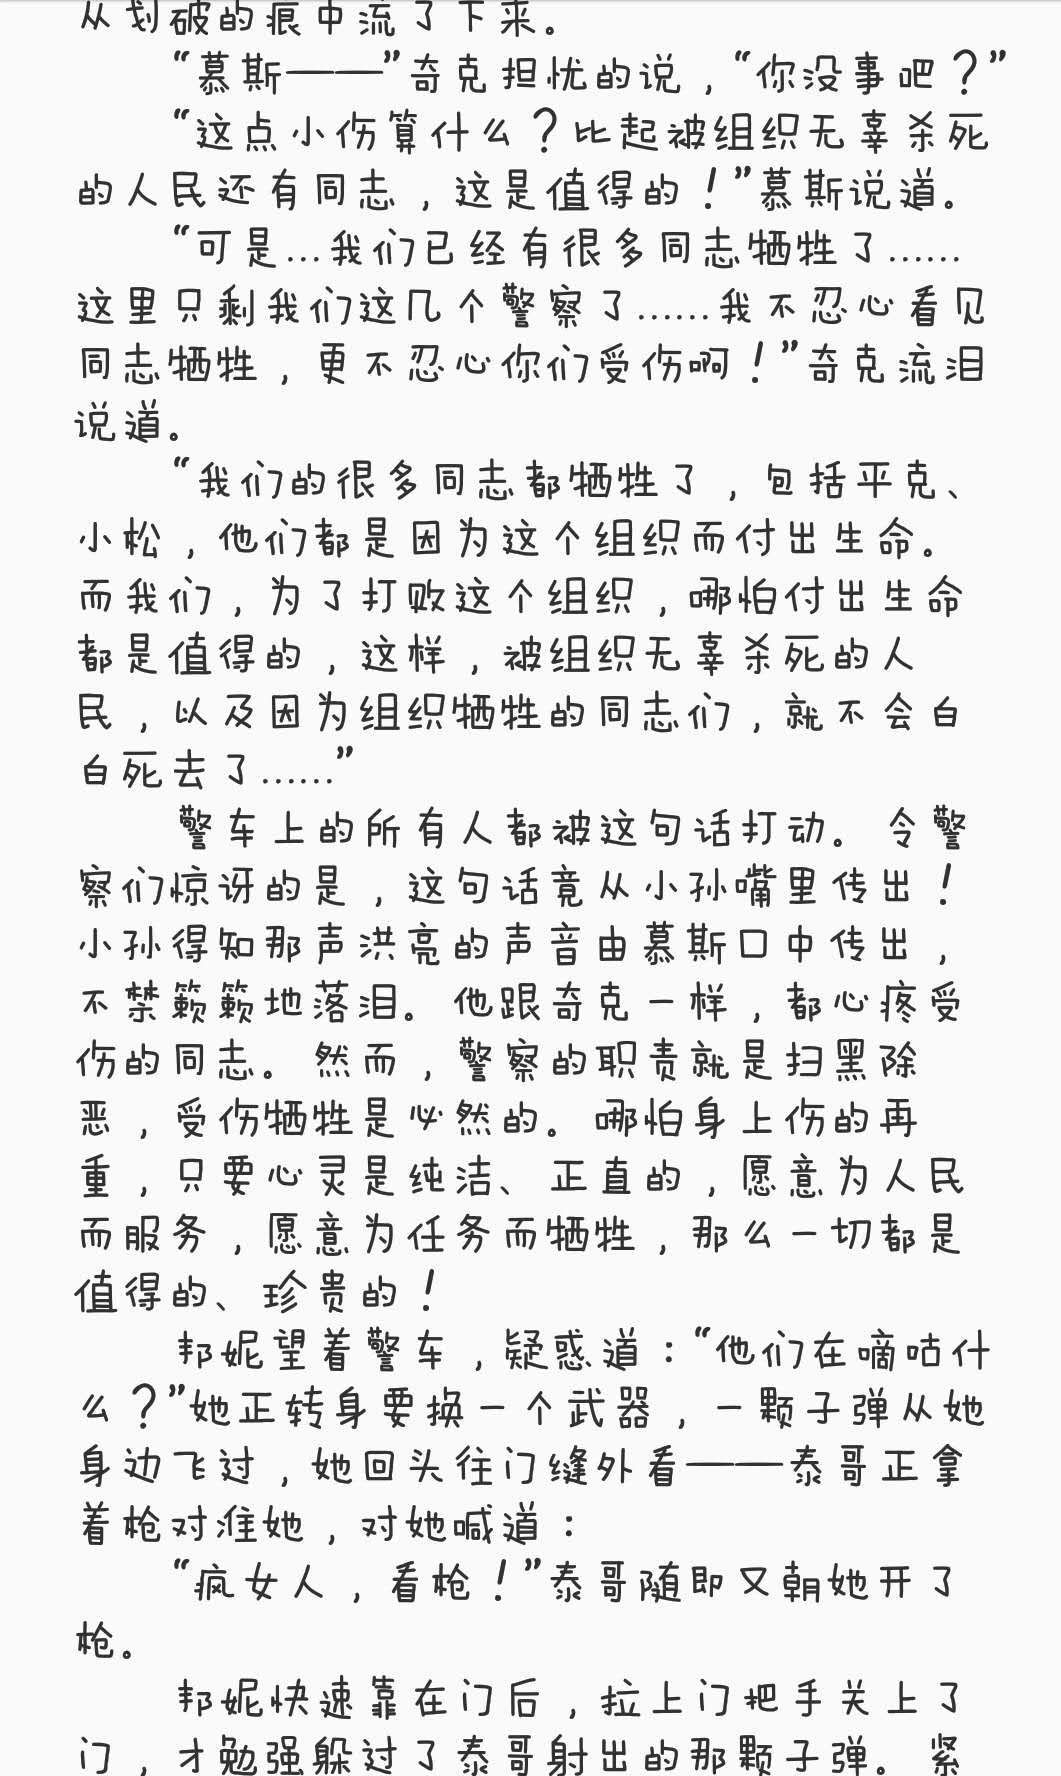 从划破的痕中流了下来。
“慕斯——”奇克担忧的说，“你没事吧？”
“这点小伤算什么？比起被组织无辜杀死
的人民还有同志，这是值得的！”慕斯说道。
“可是…我们已经有很多同志牺牲了……
这里只剩我们这几个警察了……我不忍心看见
同志牺牲，更不忍心你们受伤啊！”奇克流泪
说道。
“我们的很多同志都牺牲了，包括平克、
小松，他们都是因为这个组织而付出生命。
而我们，为了打败这个组织，哪怕付出生命
都是值得的，这样，被组织无辜杀死的人
民，以及因为组织牺牲的同志们，就不会白
白死去了……”
警车上的所有人都被这句话打动。令警
察们惊讶的是，这句话竟从小孙嘴里传出！
小孙得知那声洪亮的声音由慕斯口中传出，
不禁簌簌地落泪。他跟奇克一样，都心疼受
伤的同志。然而，警察的职责就是扫黑除
恶，受伤牺牲是必然的。哪怕身上伤的再
重，只要心灵是纯洁、正直的，愿意为人民
而服务，愿意为任务而牺牲，那么一切都是
值得的、珍贵的！
邦妮望着警车，疑惑道：“他们在嘀咕什
么？”她正转身要换一个武器，一颗子弹从她
身边飞过，她回头往门缝外看——泰哥正拿
着枪对准她，对她喊道：
“疯女人，看枪！”泰哥随即又朝她开了
枪。
邦妮快速靠在门后，拉上门把手关上了
门，才勉强躲过了泰哥射出的那颗子弹。紧